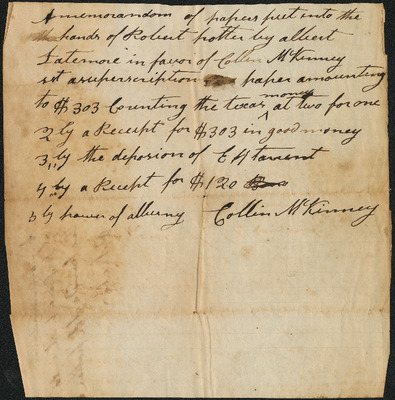 A memorandom of papers put into the
hands of Robert potter by albert
Latemore in favor of Collin McKinney
1st a superscription paper amounting
to $303 Counting the texas money at two for one
2 ly a Receipt for $303 in good money
3 ly the deposion of E H tarrent
4 ly a Receipt for $120
5 ly power of atturny Collin McKinney